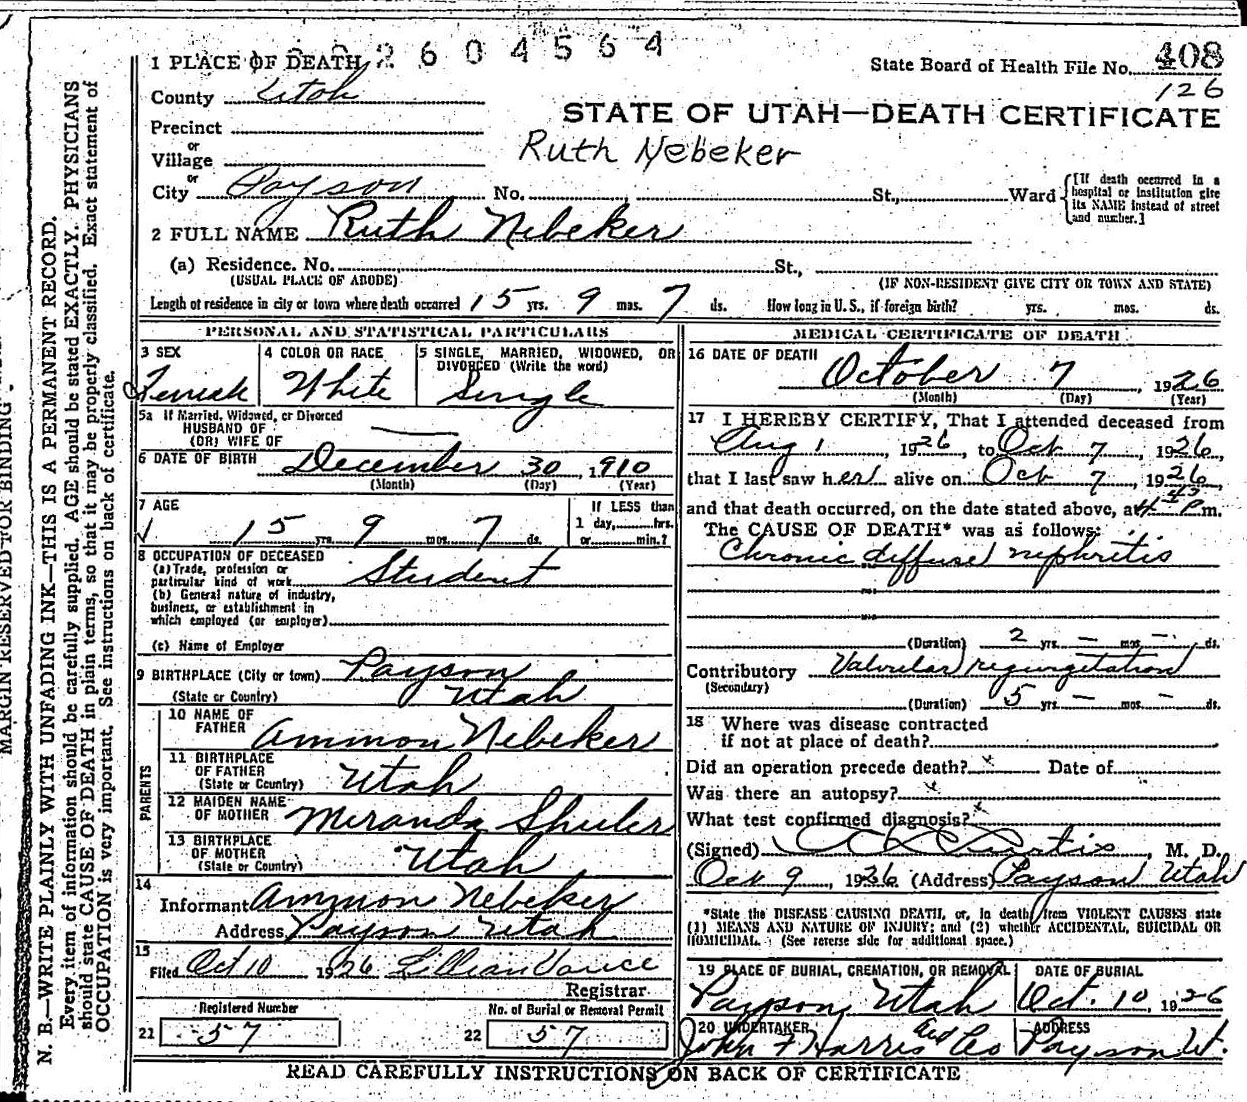 2604564
1 PLACE OF DEATH
State Board of Health File No. 408
126
County Utah
STATE OF UTAH—DEATH CERTIFICATE
Precinct
or
Village
Ruth Nebeker
or
City Payson No. St., Ward [If death occurred in a hospital or institution give its NAME instead of street and number.]
2 FULL NAME Ruth Nebeker
(a) Residence. No. St.,
(USUAL PLACE OF ABODE) (IF NON-RESIDENT GIVE CITY OR TOWN AND STATE)
Length of residence in city or town where death occurred 15 yrs. 9 mos. 7 ds. How long in U.S., if foreign birth? yrs. mos. ds.
PERSONAL AND STATISTICAL PARTICULARS
3 SEX
Female
4 COLOR OR RACE
White
5 SINGLE, MARRIED, WIDOWED, OR
DIVORCED (Write the word)
Single
5a If Married, Widowed, or Divorced
HUSBAND OF
(OR) WIFE OF
6 DATE OF BIRTH December 30, 1910
(Month) (Day) (Year)
7 AGE
15 yrs. 9 mos. 7 ds.
If LESS than
1 day, hrs.
or min.?
8 OCCUPATION OF DECEASED
(a) Trade, profession or
particular kind of work Student
(b) General nature of industry,
business, or establishment in
which employed (or employer)
(c) Name of Employer
9 BIRTHPLACE (City or town) Payson
(State or Country) Utah
PARENTS
10 NAME OF
FATHER Ammon Nebeker
11 BIRTHPLACE
OF FATHER
(State or Country) Utah
12 MAIDEN NAME
OF MOTHER Miranda Shuler
13 BIRTHPLACE
OF MOTHER
(State or Country) Utah
14
Informant Ammon Nebeker
Address Payson Utah
15
Filed Oct 10 1926 Lillian Vance
Registrar
Registered Number
21 57
No. of Burial or Removal Permit
22 57
MEDICAL CERTIFICATE OF DEATH
16 DATE OF DEATH
October 7, 1926
(Month) (Day) (Year)
17 I HEREBY CERTIFY, That I attended deceased from
Aug 1, 1926, to Oct 7, 1926,
that I last saw her alive on Oct 7, 1926,
and that death occurred, on the date stated above, at 4 45 P m.
The CAUSE OF DEATH* was as follows:
Chronic diffuse nephritis
(Duration) 2 yrs. — mos. — ds.
Contributory Valvular regurgetation
(Secondary)
(Duration) 5 yrs. — mos. — ds.
18 Where was disease contracted
if not at place of death?
Did an operation precede death? x Date of
Was there an autopsy? x
What test confirmed diagnosis? x
(Signed) Curtis, M. D.
Oct 9, 1926 (Address) Payson Utah
*State the DISEASE CAUSING DEATH, or, in death from VIOLENT CAUSES state
(1) MEANS AND NATURE OF INJURY; and (2) whether ACCIDENTAL, SUICIDAL OR
HOMICIDAL. (See reverse side for additional space.)
19 PLACE OF BURIAL, CREMATION, OR REMOVAL
Payson, Utah
DATE OF BURIAL
Oct. 10, 1926
20 UNDERTAKER
John F Harris Und Co
ADDRESS
Payson Ut.
READ CAREFULLY INSTRUCTIONS ON BACK OF CERTIFICATE
MARGIN RESERVED FOR BINDING
N. B.—WRITE PLAINLY WITH UNFADING INK—THIS IS A PERMANENT RECORD.
Every item of information should be carefully supplied. AGE should be stated EXACTLY. PHYSICIANS
should state CAUSE OF DEATH in plain terms, so that it may be properly classified. Exact statement of
OCCUPATION is very important. See instructions on back of certificate.